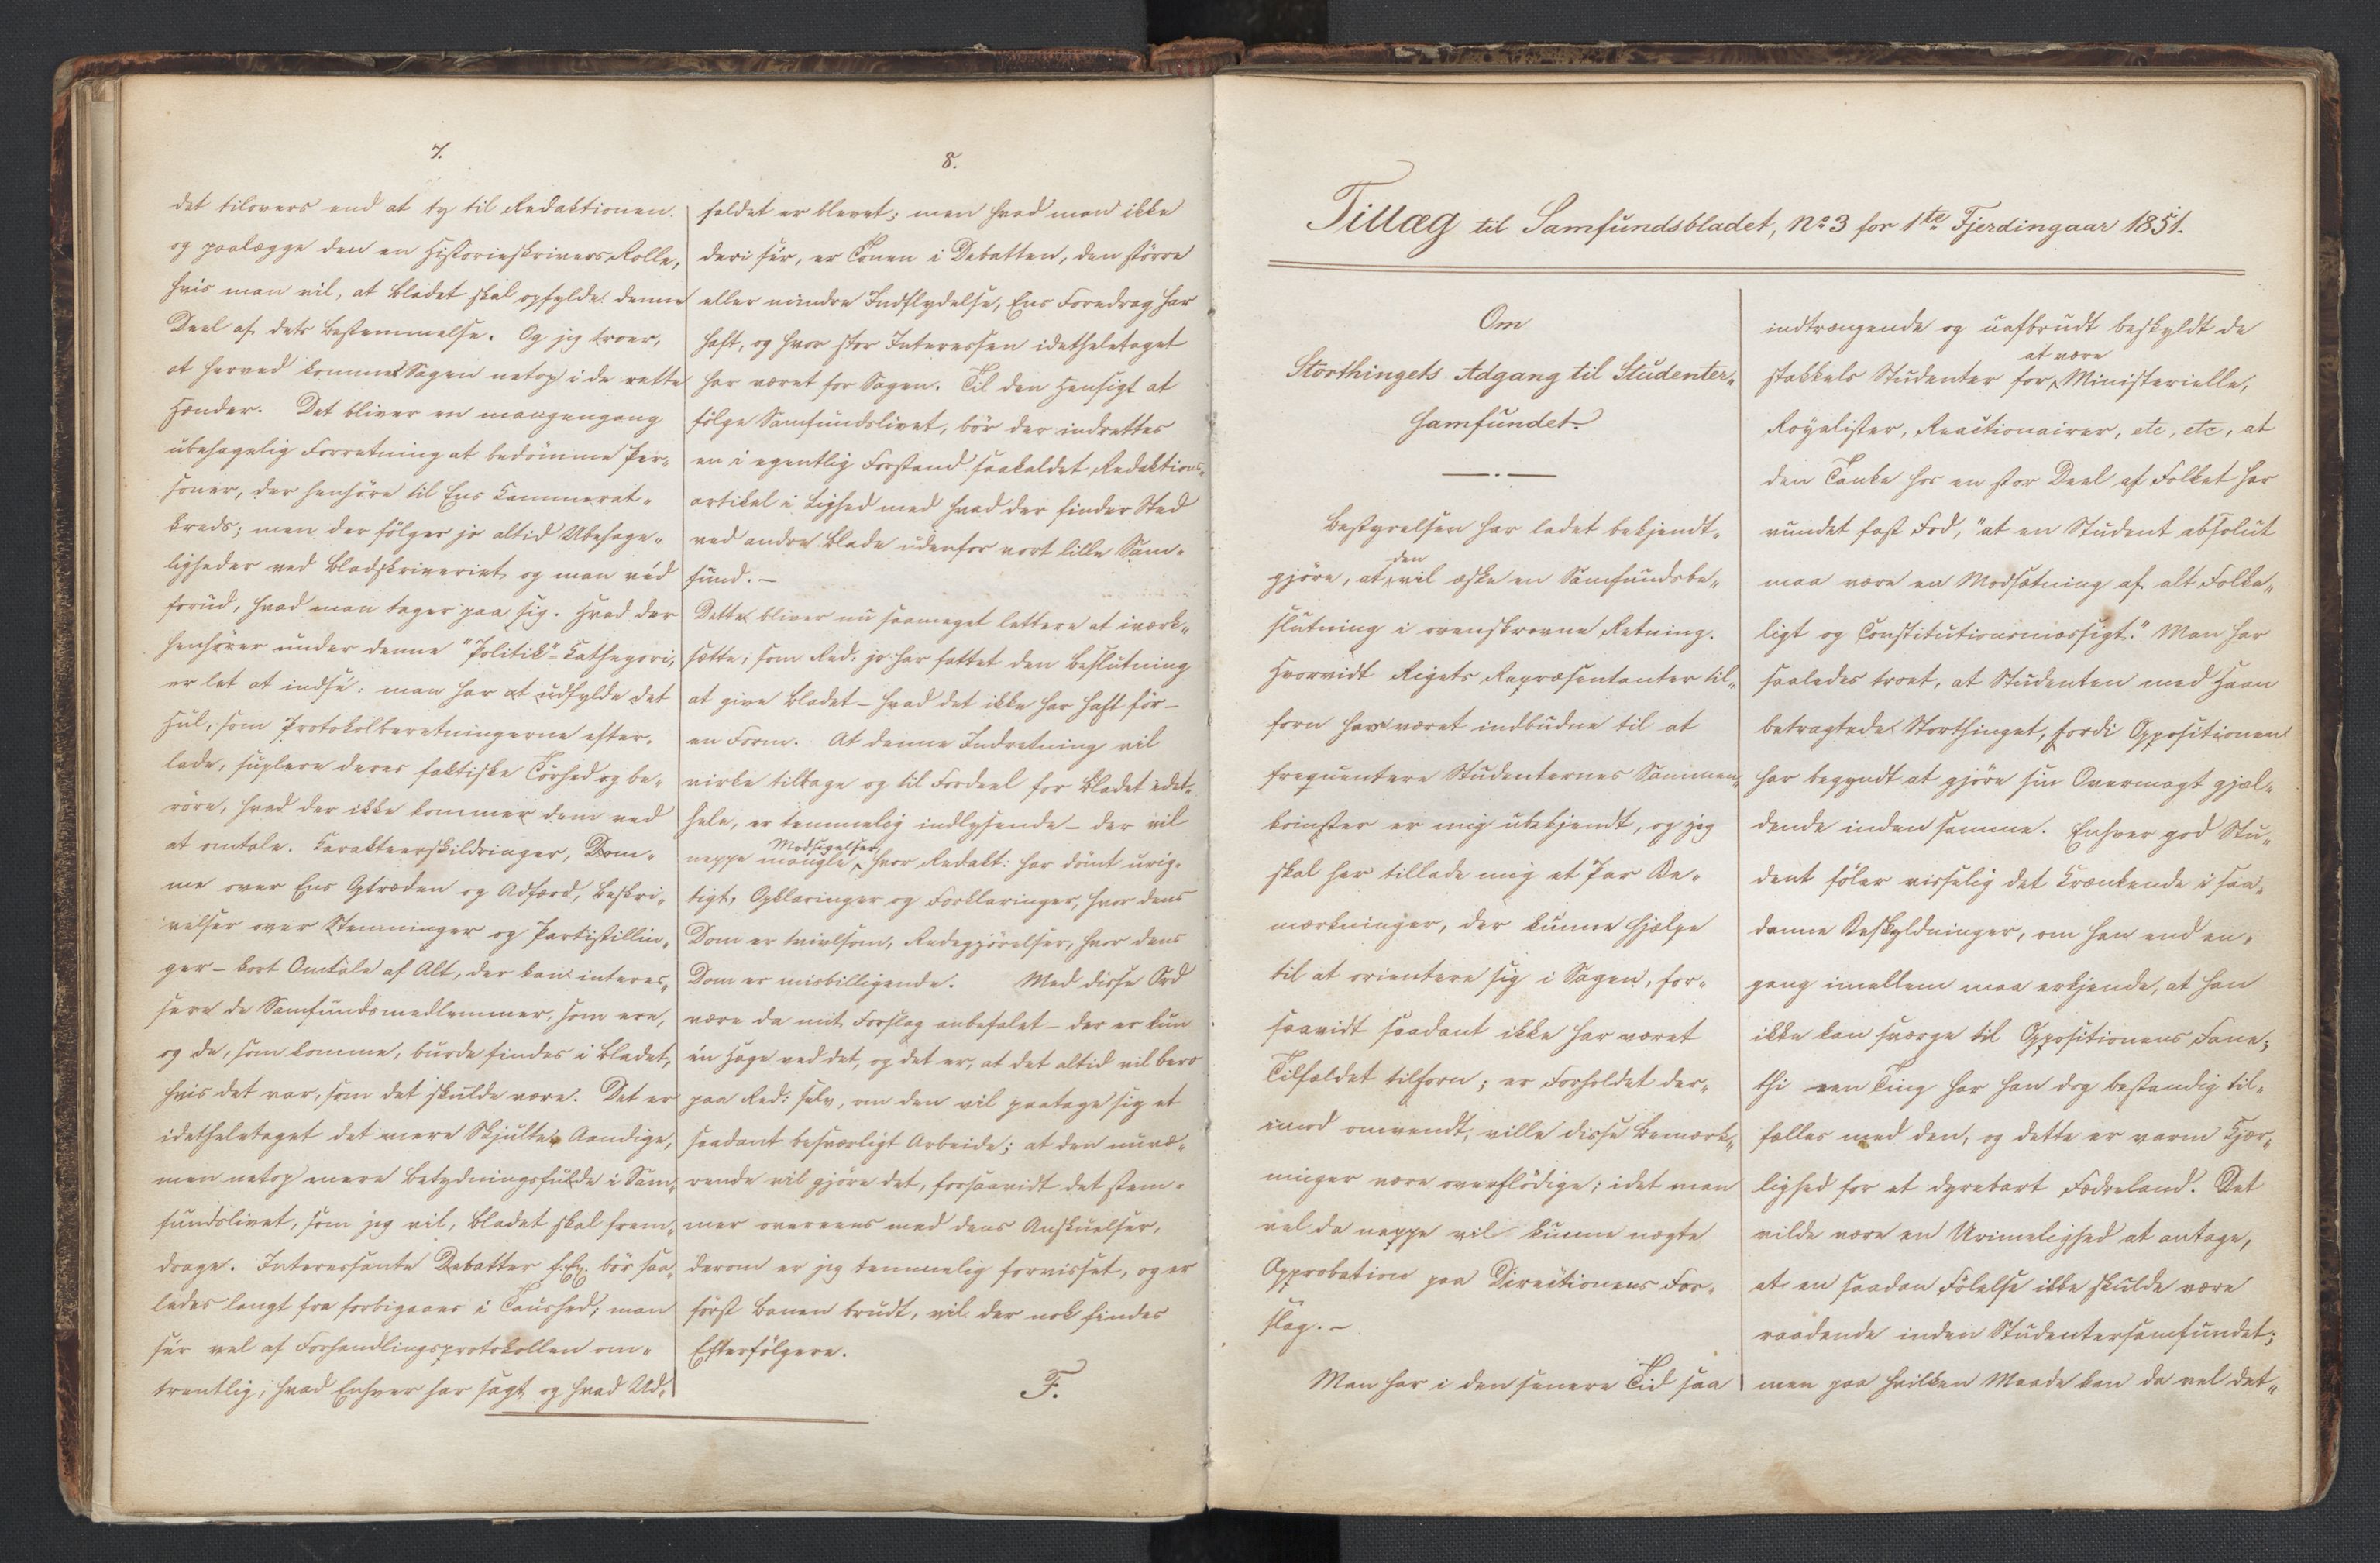 7.
det tilovers end at ty til Redaktionen
og paalægge den en Historieskrivers Rolle,
hvis man vil, at Bladet skal opfylde denne
Deel af dets Bestemmelse. Og jeg troer,
at herved kommer Sagen netop i de rette
Hænder. Det bliver en mangengang
ubehagelig Forretning at bedømme Per-
soner, der henhøre til Ens Kammerat-
kreds; men der følger jo altid Ubehage-
ligheder ved Bladskriveriet, og man véd
forud, hvad man tager paa sig. Hvad der
henhører under denne "Politik"-Kathegori,
er let at indsé: man har at udfylde det
Hul, som Protokolberetningerne efter-
lade, suplere deres faktiske Tørhed og be-
røre, hvad der ikke kommer dem ved
at omtale. Karakteerskildringer, Dom-
me over Ens Optræden og Adfærd, Beskri-
velser over Stemninger og Partistillin-
ger – kort Omtale af Alt, der kan interes-
sere de Samfundsmedlemmer, som ere,
og de, som komme, burde findes i Bladet,
hvis det var, som det skulde være. Det er
idetheletaget det mere Skjulte, Aandige,
men netop mere Betydningsfulde i Sam-
fundslivet, som jeg vil, Bladet skal frem-
drage. Interessante Debatter f. Ex. bør saa-
ledes langt fra forbigaaes i Taushed; man
sér vel af Forhandlingsprotokollen om-
trentlig, hvad Enhver har sagt og hvad Ud-
8.
faldet er blevet; men hvad man ikke
deri sér, er Tonen i Debatten, den større
eller mindre Indflydelse, Ens Foredrag har
haft, og hvor stor Interessen idetheletaget
har været for Sagen. Til den Hensigt at
følge Samfundslivet, bør der indrettes
en i egentlig Forstand saakaldet Redaktions-
artikel i Lighed med hvad der finder Sted
ved andre Blade udenfor vort lille Sam-
fund. –
Dette bliver nu saameget lettere at iværk-
sætte, som Red. jo har fattet den Beslutning
at give Bladet – hvad det ikke har haft før –
en Form. At denne Indretning vil
virke tilbage og til Fordeel for Bladet idet-
hele, er temmelig indlysende – der vil
neppe mangle Modsigelser, hvor Redakt: har dømt urig-
tigt, Opklaringer og Forklaringer, hvor dens
Dom er tvivlsom, Redegjørelser, hvor dens
Dom er misbilligende. Med disse Ord
være da mit Forslag anbefalet – der er kun
én Hage ved det, og det er, at det altid vil bero
paa Red: selv, om den vil paatage sig et
saadant besværligt Arbeide; at den nuvæ-
rende vil gjøre det, forsaavidt det stem-
mer overeens med dens Anskuelser,
derom er jeg temmelig forvisset, og er
først Banen brudt, vil der nok findes
Efterfølgere.
F.
Tillæg til Samfundsbladet, No 3 for 1te Fjerdingaar 1851.
Om
Storthingets Adgang til Studenter-
samfundet.
Bestyrelsen har ladet bekjendt-
gjøre, at den vil æske en Samfundsbe-
slutning i ovenskrevne Retning.
Hvorvidt Rigets Repræsentanter til-
forn have været indbudne til at
frequentere Studenternes Sammen-
komster er mig ubekjendt, og jeg
skal her tillade mig et Par Be-
mærkninger, der kunne hjælpe
til at orientere sig i Sagen, for-
saavidt saadant ikke har været
Tilfældet tilforn; er Forholdet der-
imod omvendt, ville disse Bemærk-
ninger være overflødige; idet man
vel da neppe vil kunne negte
Approbation paa Directionens For-
slag. –
Man har i den senere Tid saa
indtrængende og uafbrudt beskyldt de
stakkels Studenter for at være Ministerielle,
Royalister, Reactionairer, etc, etc, at
den Tanke hos en stor Deel af Folket har
vundet fast Fod, "at en Student absolut
maa være en Modsætning af alt Folke-
ligt og Constitutionsmæssigt." Man har
saaledes troet, at Studenten med Haan
betragtede Storthinget, fordi Oppositionen
har begyndt at gjøre sin Overmagt gjæl-
dende inden samme. Enhver god Stu-
dent føler visselig det Krænkende i saa-
danne Beskyldninger, om han end en-
gang imellem maa erkjende, at han
ikke kan sværge til Oppositionens Fane;
thi een Ting har han dog bestandig til-
fælles med den, og dette er varm Kjær-
lighed for et dyrebart Fædreland. Det
vilde være en Urimelighed at antage,
at en saadan Følelse ikke skulde være
raadende inden Studentersamfundet;
men paa hvilken Maade kan da vel det-